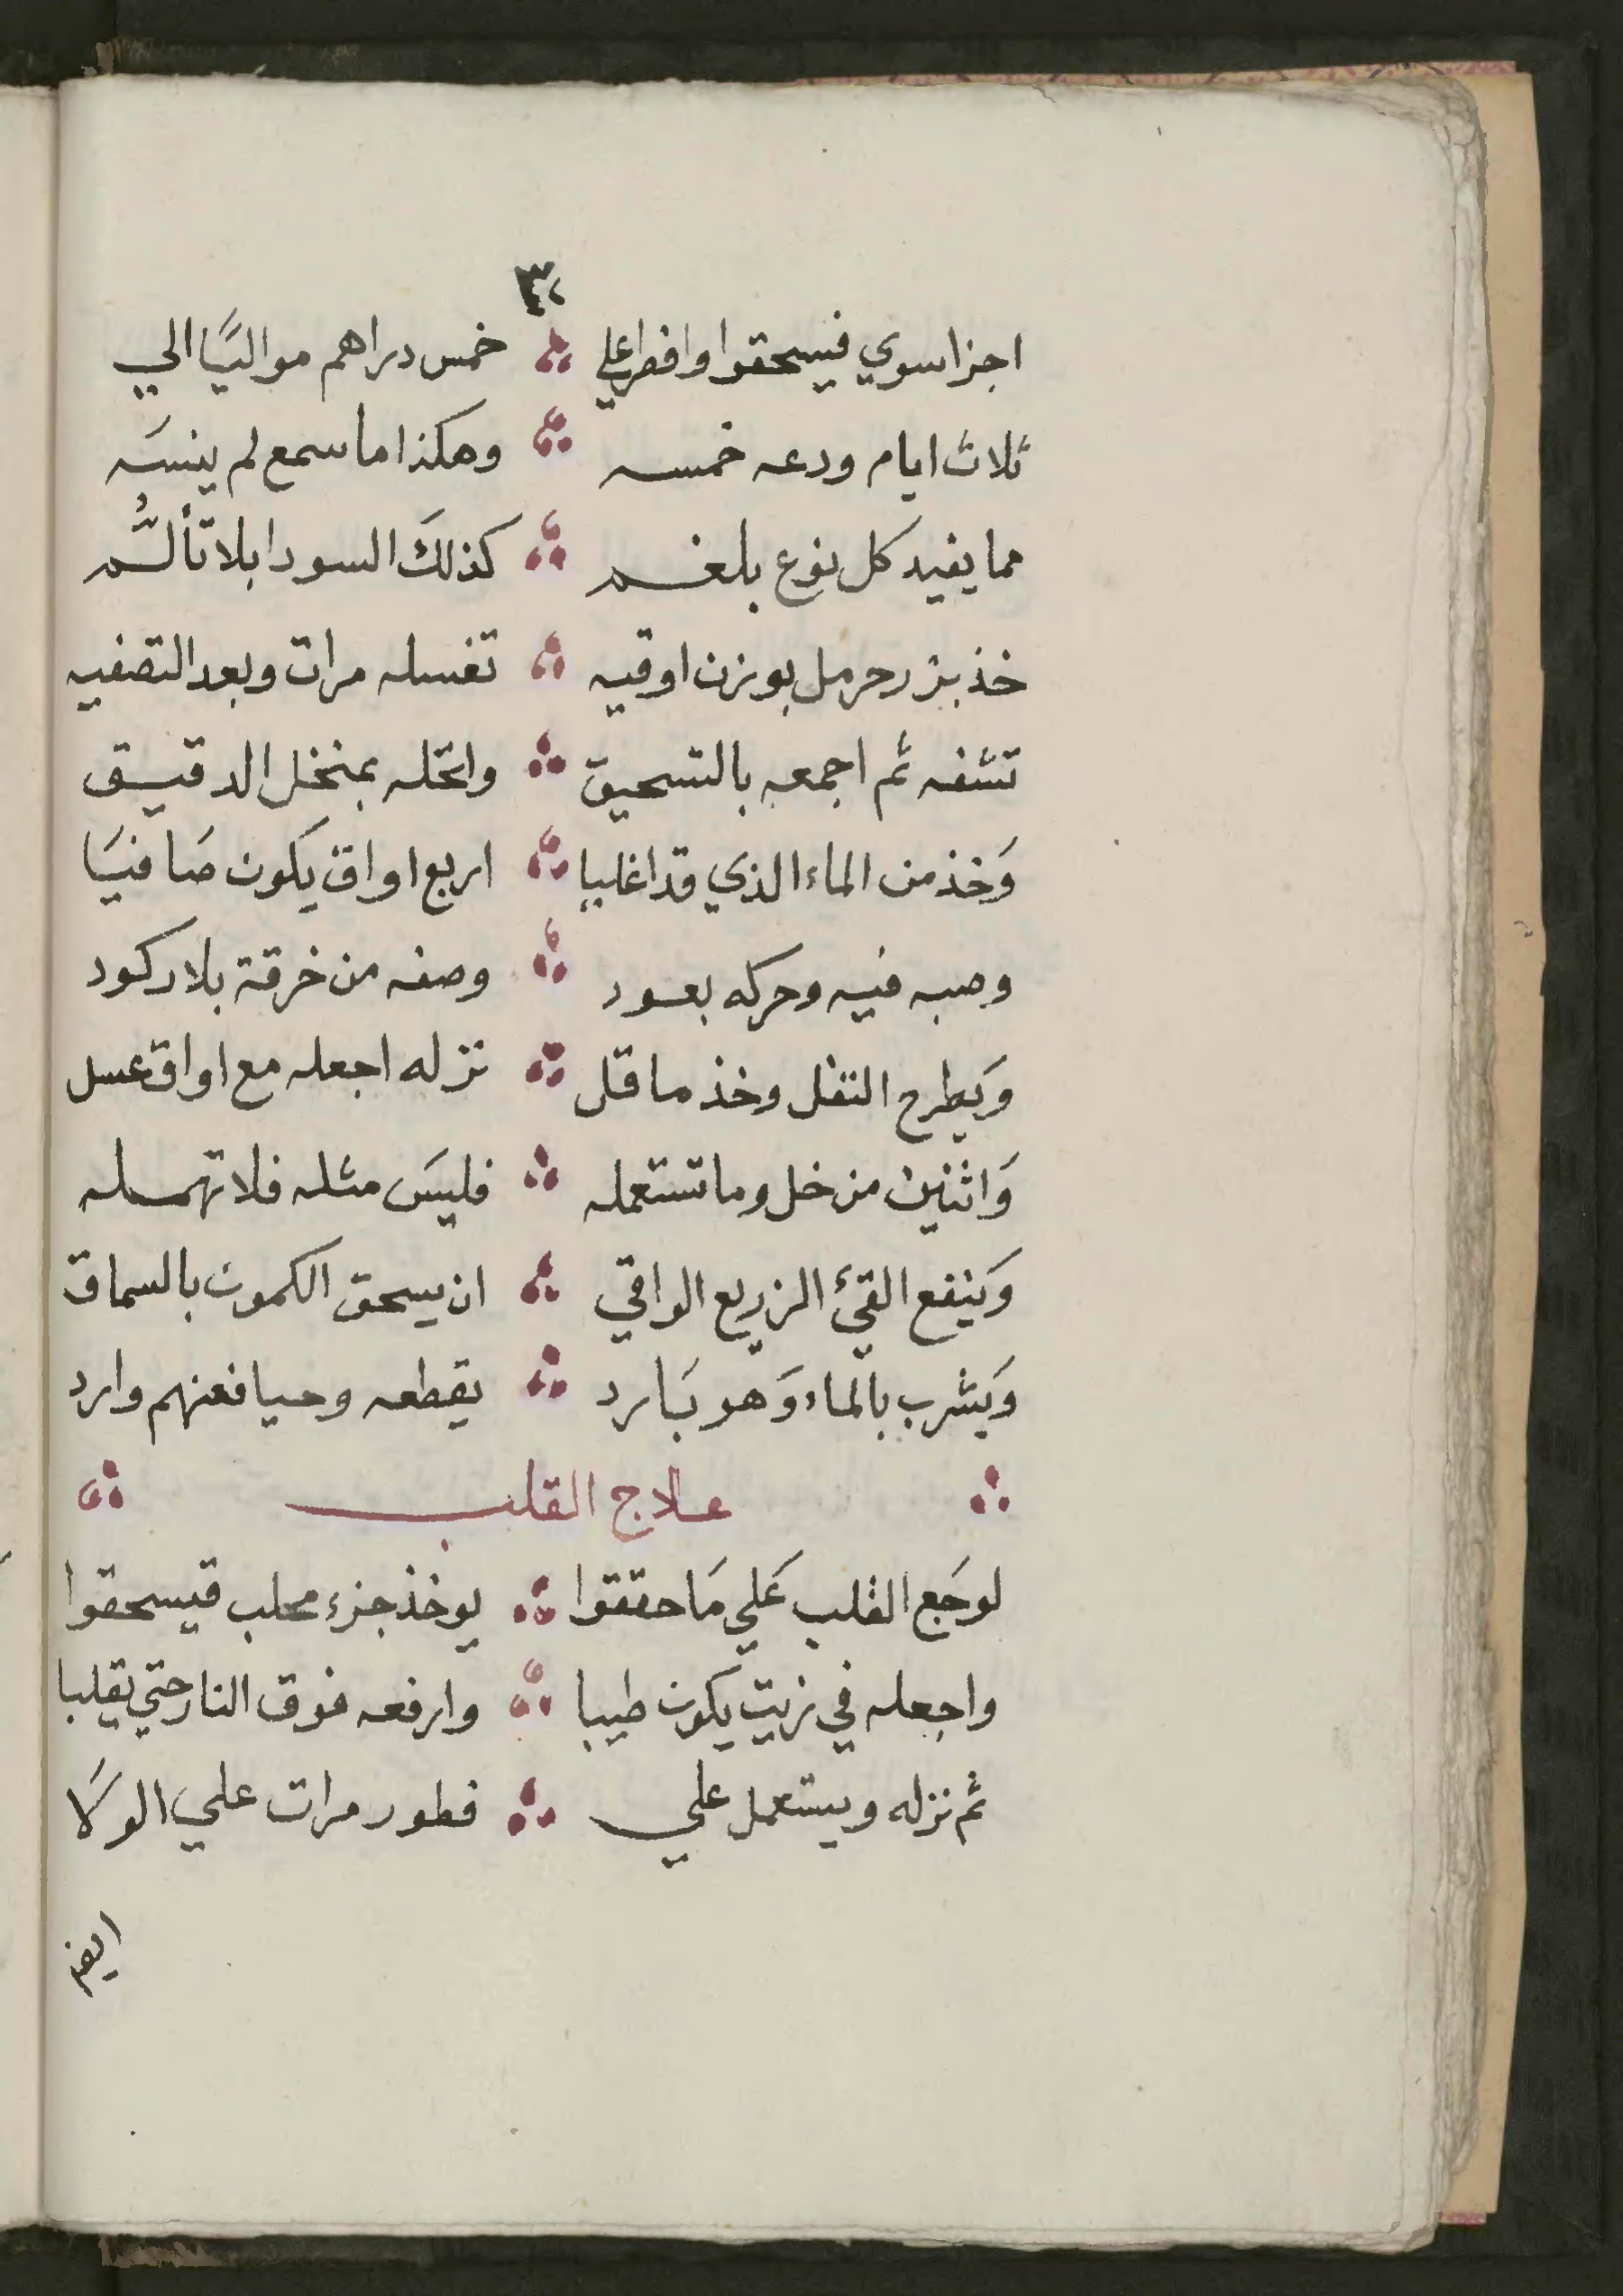 اجزا سوي فيسحقوا وافطر علي خمس دراهم مواليًا الي
ثلاث ايام ودعه خمسه وهكذا ما سمع لم ينسَه
مما يفيد كل نوع بلغم كذلكَ السودا بلا تألُّم
خذ بزر حرمل بوزن اوقيه تغسله مرات وبعد التصفيه
تنشفه ثم اجمعه بالتسحيق وانخله بمنخل الدقيق
وَخذ من الماء الذي قد اغليا اربع اواق يكون صَافيَا
وصبه فيه وحركه بعود وصفه من خرقة بلا ركود
وَيطرح التفل وخذ ما قل نزله اجعله مع اواق عسل
وَاثنين من خل وما تستعمله فليسَ مثله فلا تهمله
وَينفع القيء الزريع الواقي ان يسحق الكمون بالسماق
وَيشرب بالماء وَهو بَارد يقطعه وحيا فعنهم وارد
علاج القلب
لوجَع القلب عَلي مَا حققوا يوخذ جزء محلب فيسحقوا
واجعله في زيت يكون طيبا وارفعه فوق النار حتي يقلبا
ثم نزله ويستعمل علي فطور مرات علي الوَلا